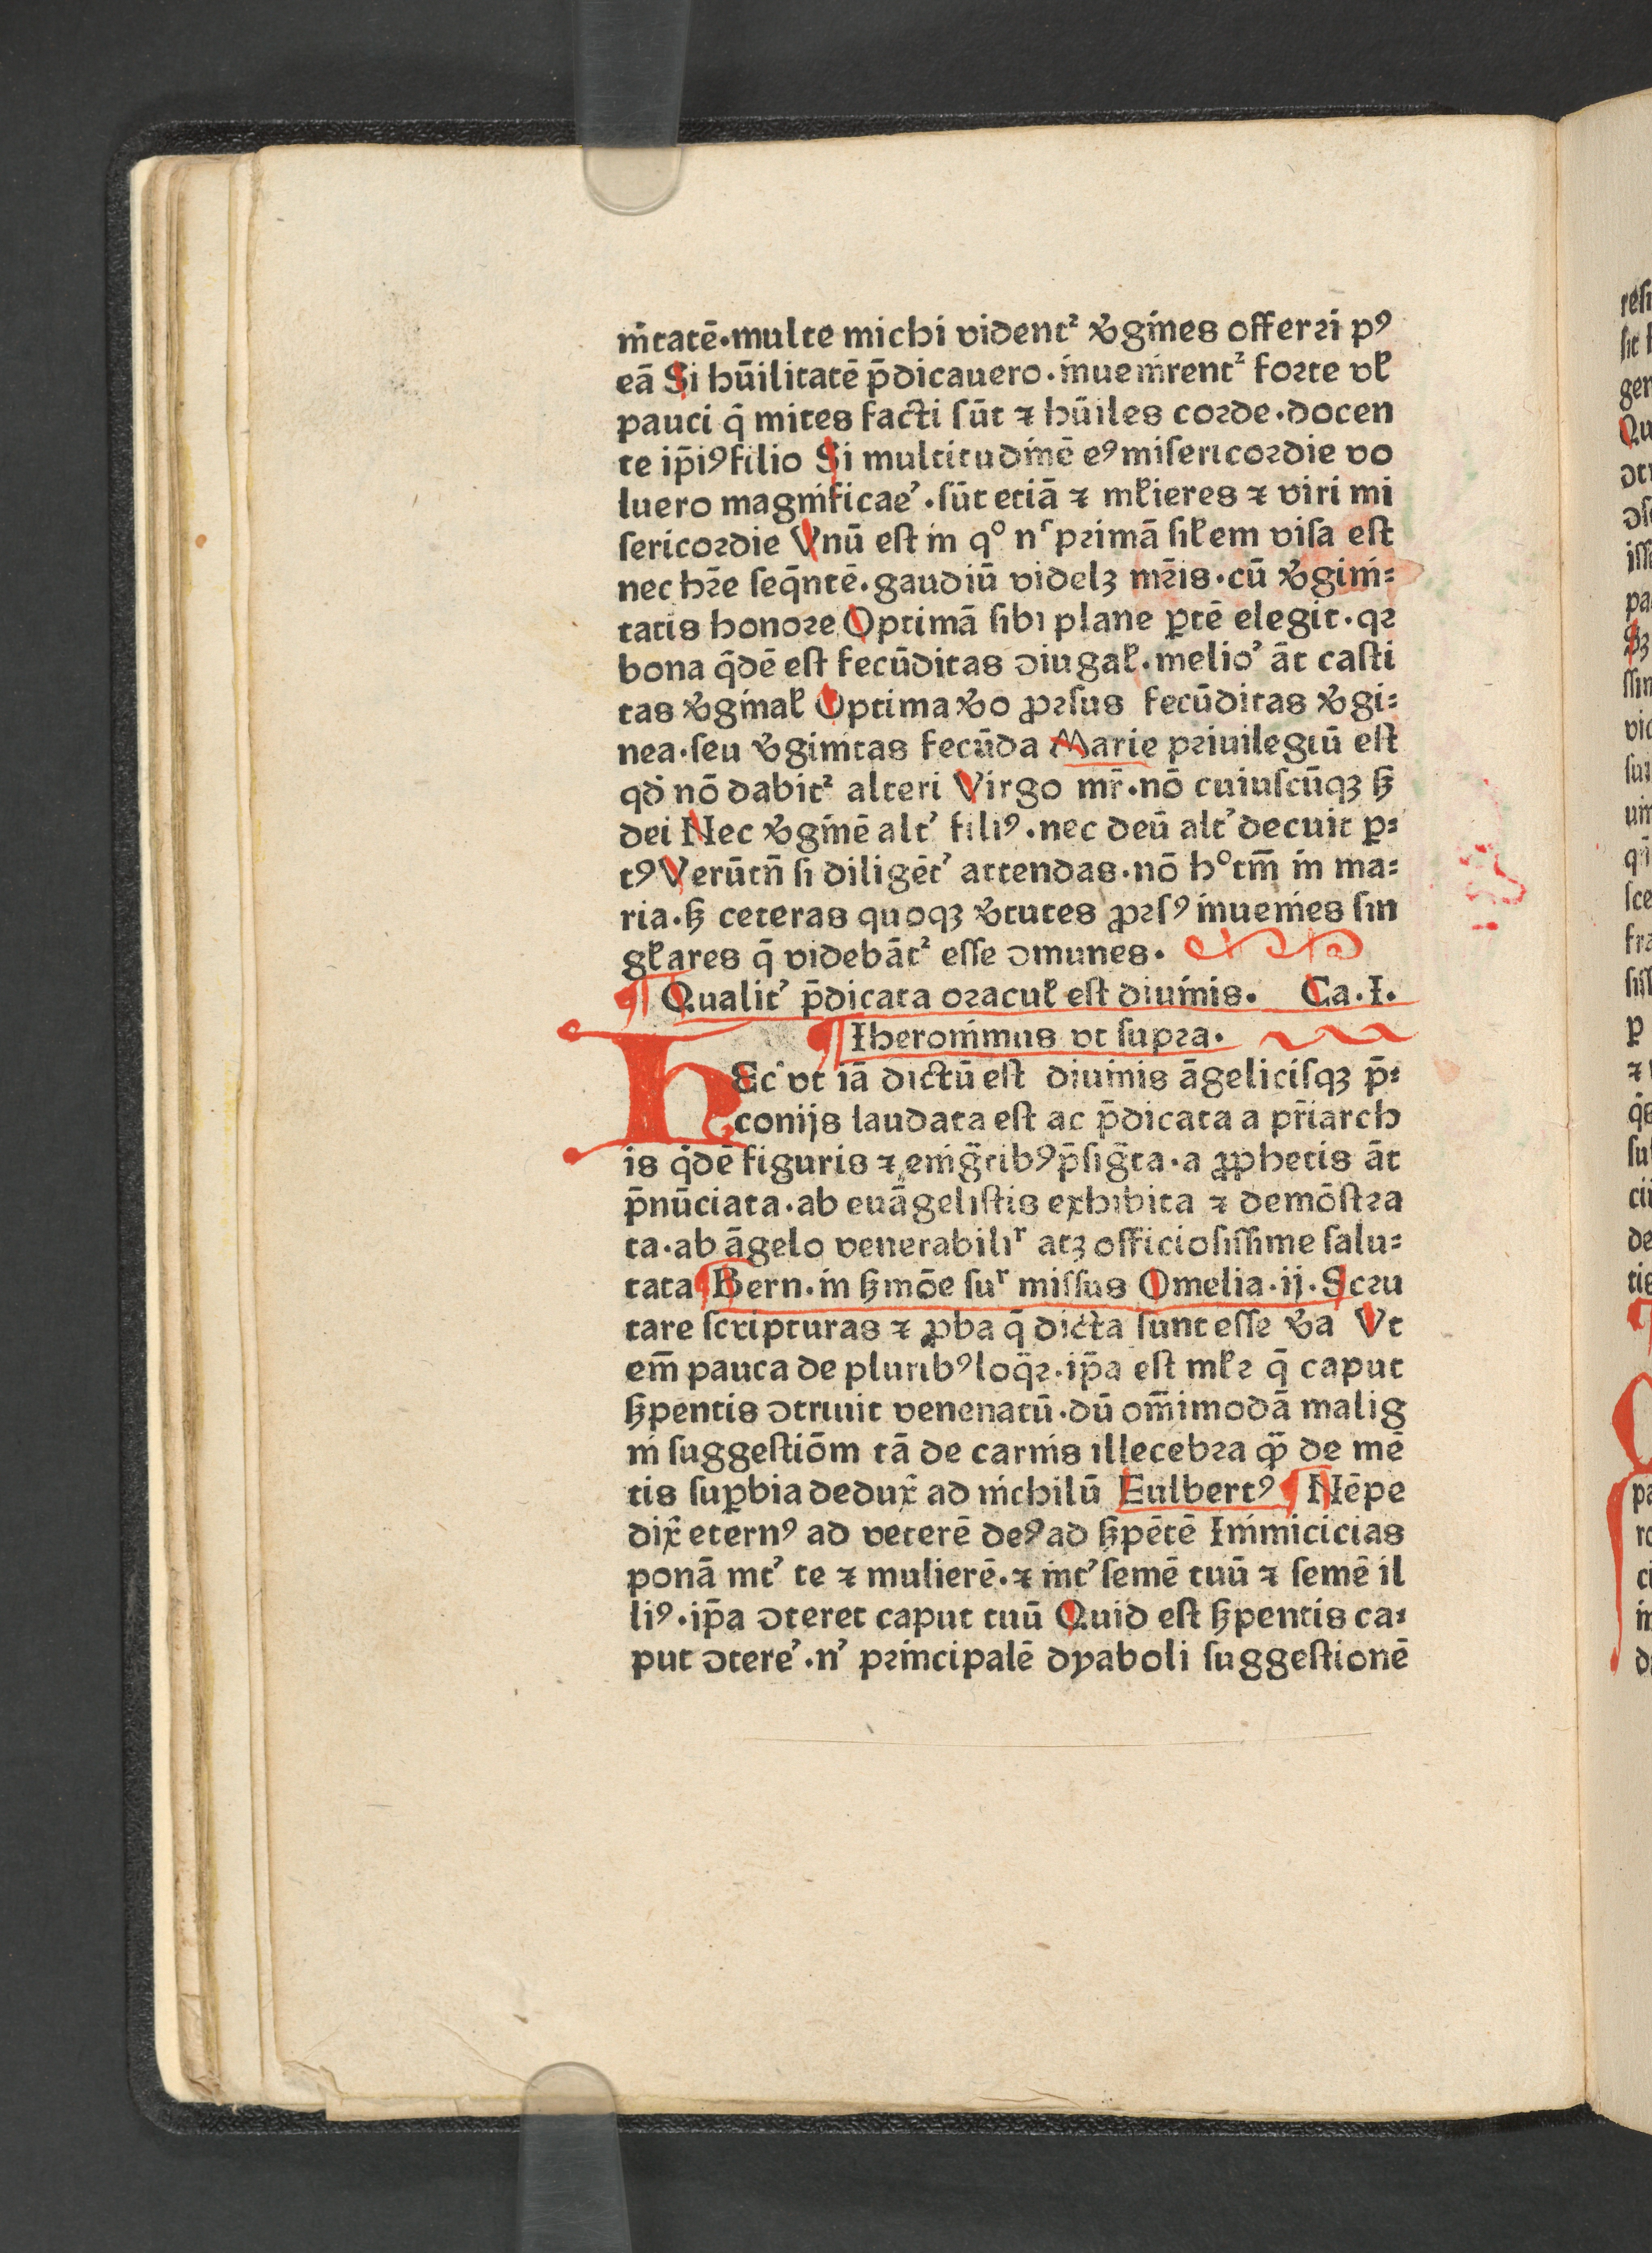 nitatē·multe michi vident² v̾gines offerri pꝰ
eā Si hūilitatē p̄dicauero·inuenirent² forte vꝉ
pauci q̄ mites facti ſūt ⁊ hūiles corde·docen
te ip̄iꝰ filio Si multitudinē eꝰ miſericordie vo
luero magnificaē·ſūt etiā ⁊ mꝉieres ⁊ viri mi
ſericordie Vnū eſt in qͦ nᷤ primā ſiꝉem viſa eſt
nec hr̄e ſeq̄ntē·gaudiū videlꝫ mr̄is·cū v̾gini⸗
tatis honore Optimā ſibi plane ꝑtē elegit·qꝛ
bona q̄dē eſt fecūditas ↄiugaꝉ·melioʼ āt caſti
tas v̾ginaꝉ Optima v̾o ꝓrſus fecūditas v̾gi⸗
nea·ſeu v̾ginitas fecūda Marie priuilegiū eſt
qđ nō dabit² alteri Virgo mr̄·nō cuiuſcūqꝫ ẜ
dei Nec v̾ginē altʼ filiꝰ·nec deū altʼ decuit ꝑ⸗
tꝰ Verūtn̄ ſi diligētʼ attendas·nō hͦ tm̄ in ma⸗
ria·ẜ ceteras quoqꝫ v̾tutes ꝓrſꝰ inuenies ſin
gꝉares q̄ videbāt² eſſe ↄmunes·
¶ Qualitʼ p̄dicata oracuꝉ eſt diuinis· Ca·I·
¶ Iheronimus vt ſupra·
HEc̾ vt iā dictū eſt diuinis āgeliciſqꝫ p̄⸗
conijs laudata eſt ac p̄dicata a pr̄iarch
is q̄dē figuris ⁊ enig̃tibꝰ p̄ſig̃ta·a ꝓphetis āt
p̄nūciata·ab euāgeliſtis exhibita ⁊ demōſtra
ta·ab āgelo venerabiliʳ atꝫ officioſiſſime ſalu⸗
tata ¶ Bern·in ẜmōe ſuʳ miſſus Omelia·ij·Scru
tare ſcripturas ⁊ ꝓba q̄ dicta ſunt eſſe v̾a Vt
em̄ pauca de pluribꝰ loq̄ꝛ·ip̄a eſt mꝉꝛ q̄ caput
ẜpentis ↄtriuit venenatū·dū om̄imodā malig
ni ſuggeſtiōm tā de carnis illecebra qͣ̄ de mē
tis ſuꝑbia dedux̄ ad nichilū Eulbertꝰ ¶ Nēpe
dix̄ eternꝰ ad veterē deꝰ ad ẜpētē Inimicicias
ponā intʼ te ⁊ mulierē·⁊ intʼ ſemē tuū ⁊ ſemē il
liꝰ·ip̄a ↄteret caput tuū Quid eſt ẜpentis ca⸗
put ↄtereʼ·nʼ principalē dyaboli ſuggeſtionē